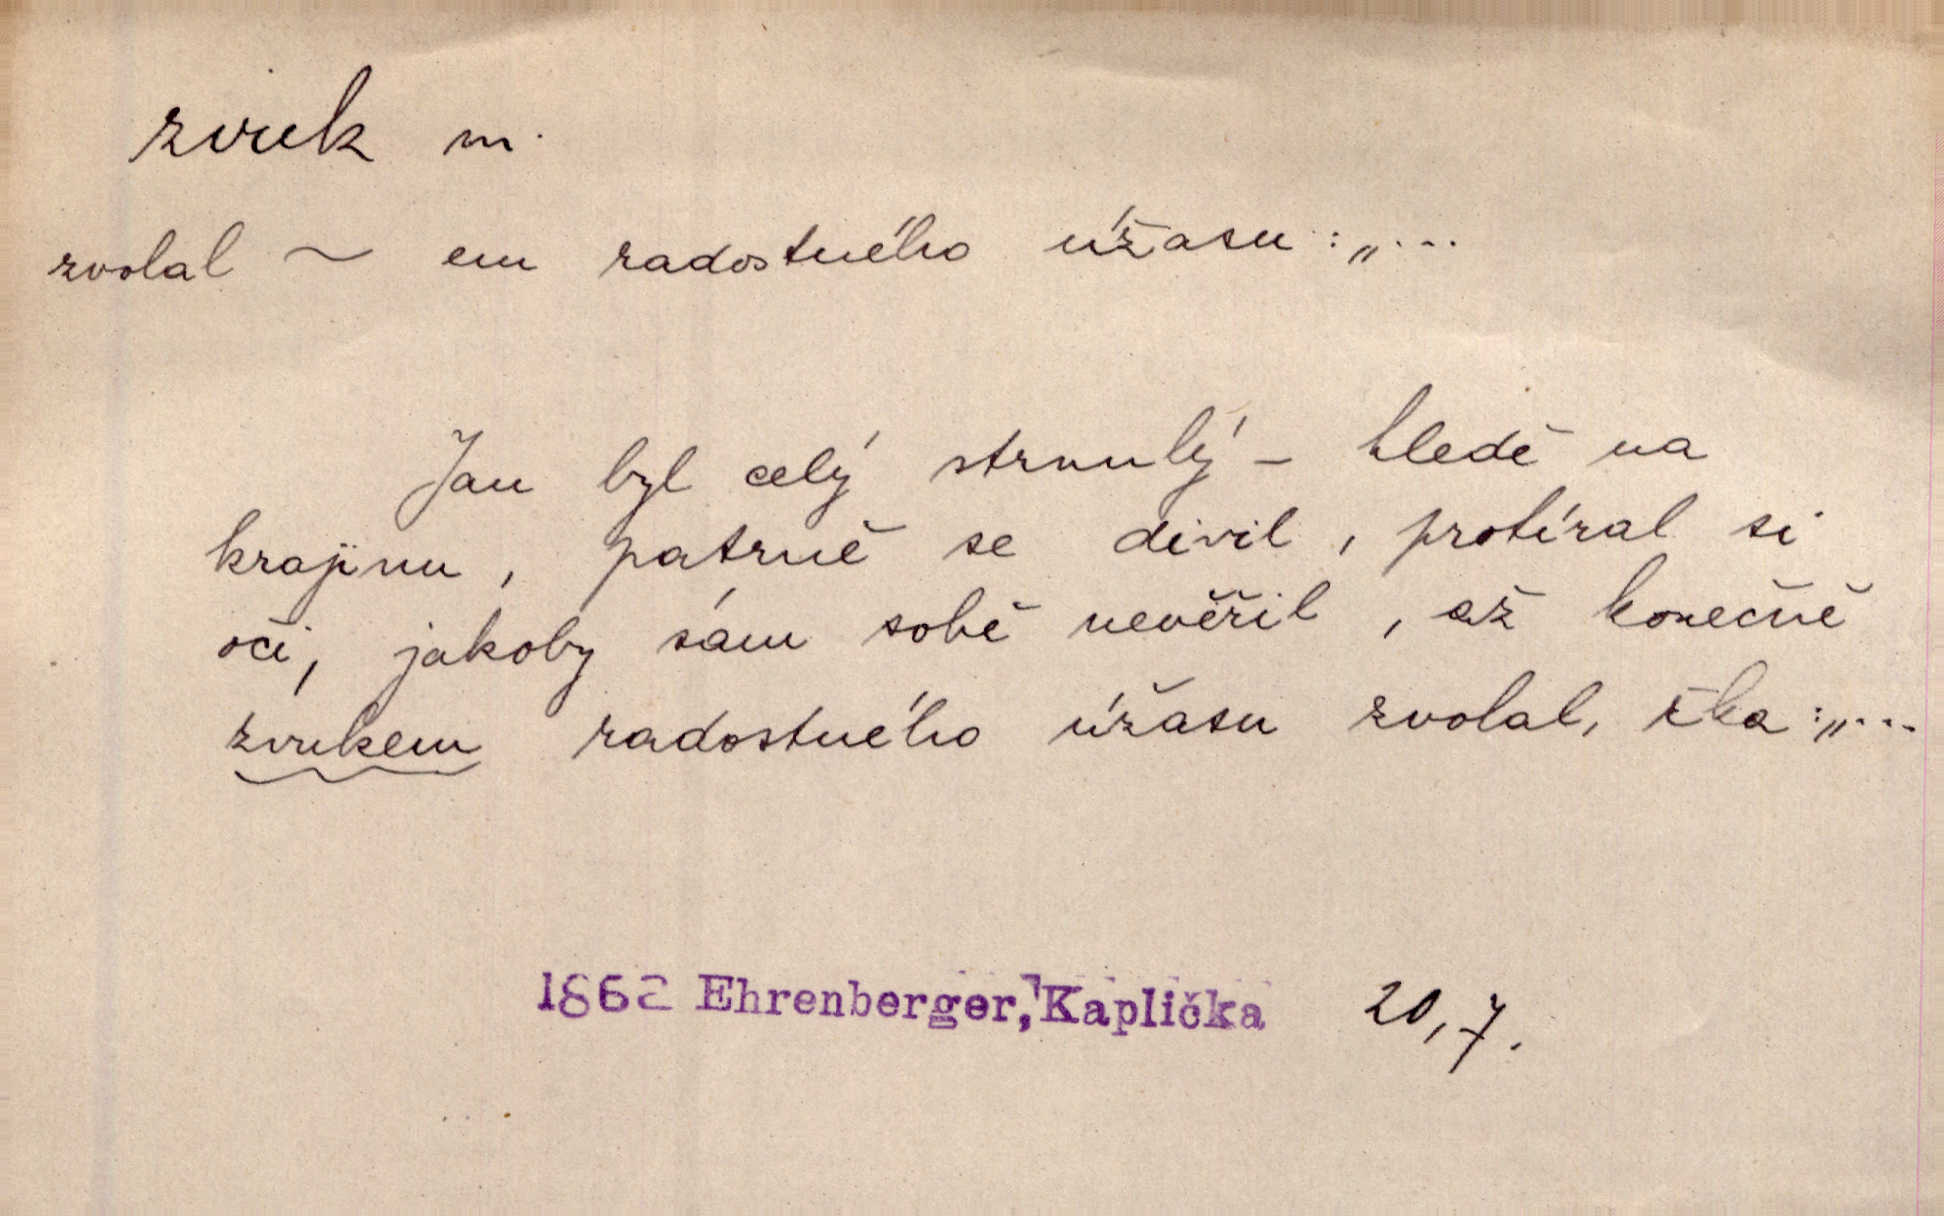 zvuk m.
zvolal ~ em radostného úžasu: „...
Jan byl celý strnulý – hledě na
krajinu, patrně se divil, protíral si
oči, jakoby sám sobě nevěřil, až konečně
zvukem radostného úžasu zvolal, řka: „...
1862 Ehrenberger, Kaplička 20, 7.